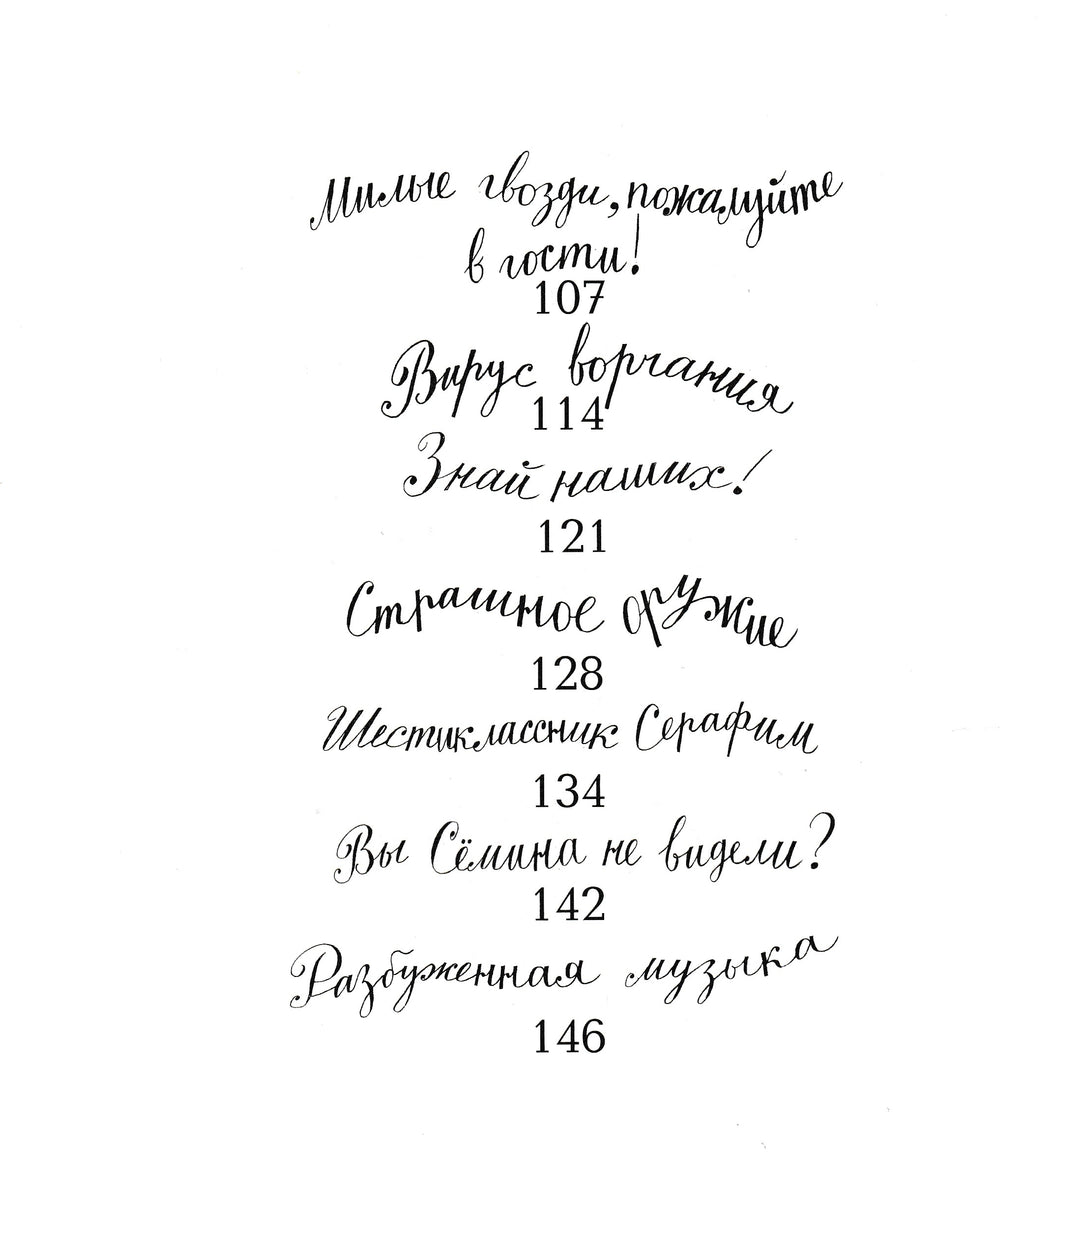 Милые гвозди, пожалуйте
в гости!
107
Вирус ворчания
114
Знай наших!
121
Страшное оружие
128
Шестиклассник Серафим
134
Вы Сёмина не видели?
142
Разбуженная музыка
146